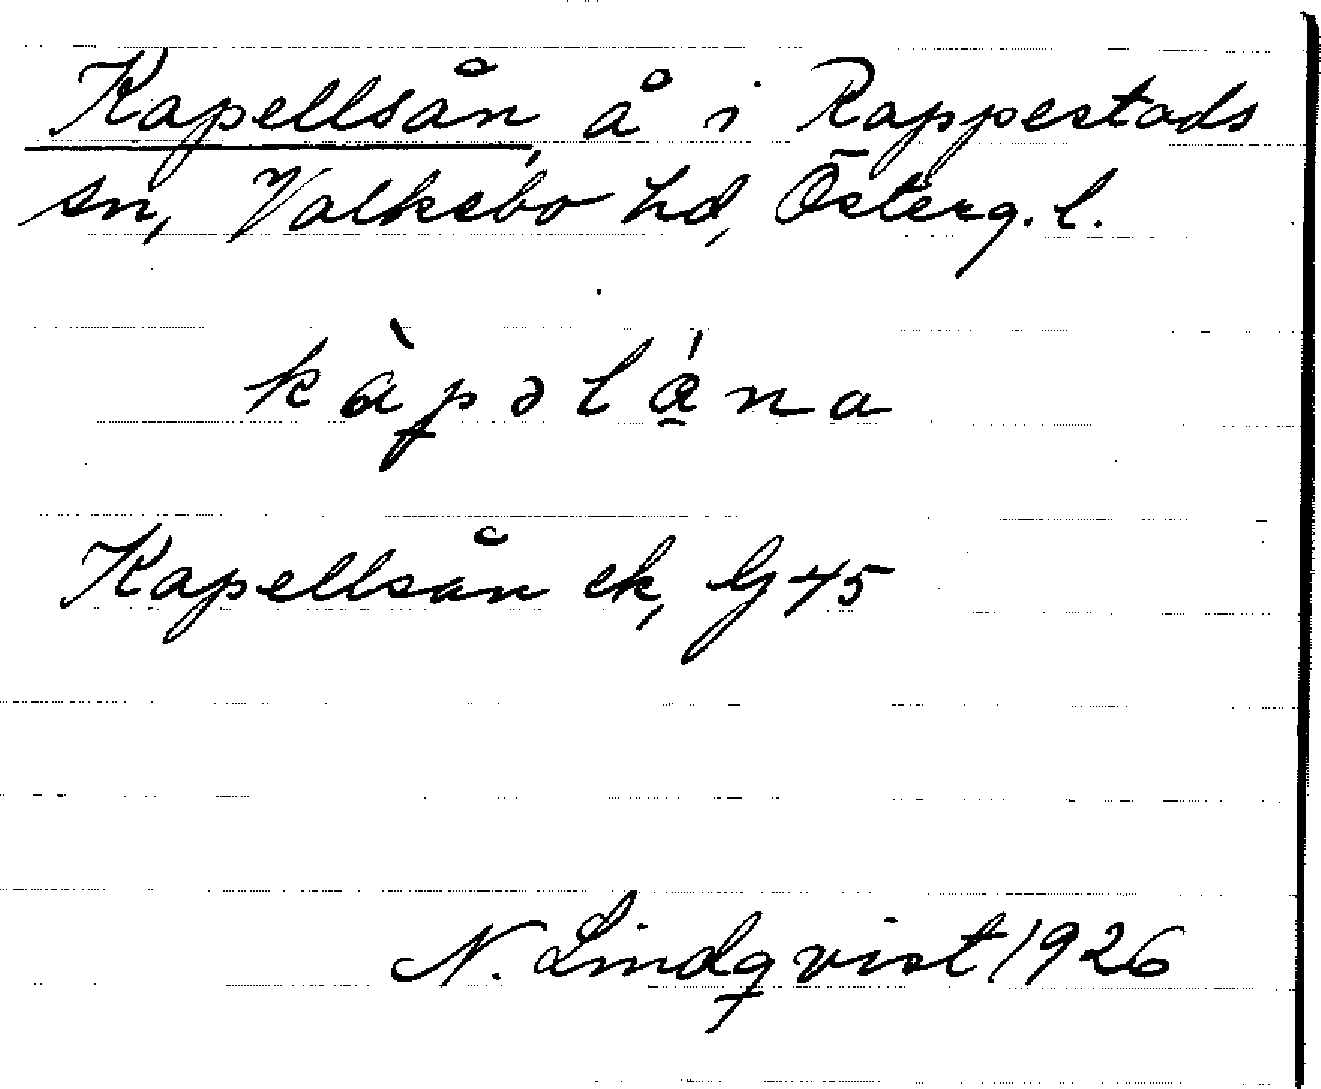 Kapellsån, å i Rappestads
sn, Valkebo hd, Österg. l.
kàpəlǻ̱na
Kapellsån ek, G 45
N. Lindqvist 1926